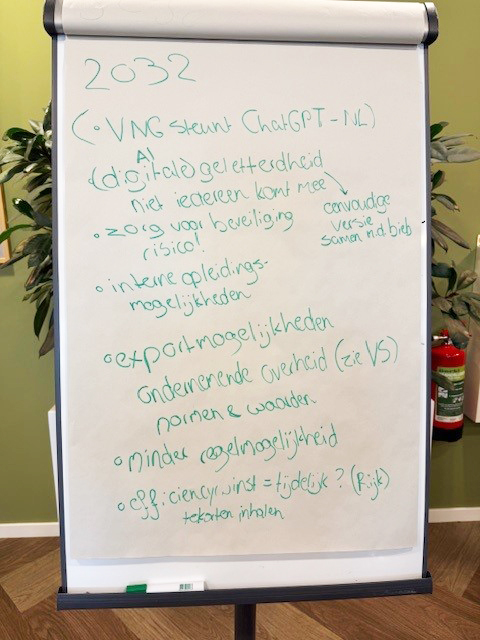 2032
(• VNG steunt ChatGPT-NL)
AI
(digitale) geletterdheid
niet iedereen komt mee
eenvoudge
versie
samen m.d. bieb
• zorg voor beveiliging
risico!
• interne opleidings-
mogelijkheden
• exportmogelijkheden
ondernemende overheid (zie VS)
normen & waarden
• minder regelmogelijkheid
• efficiencywinst = tijdelijk? (Rijk)
tekorten inhalen